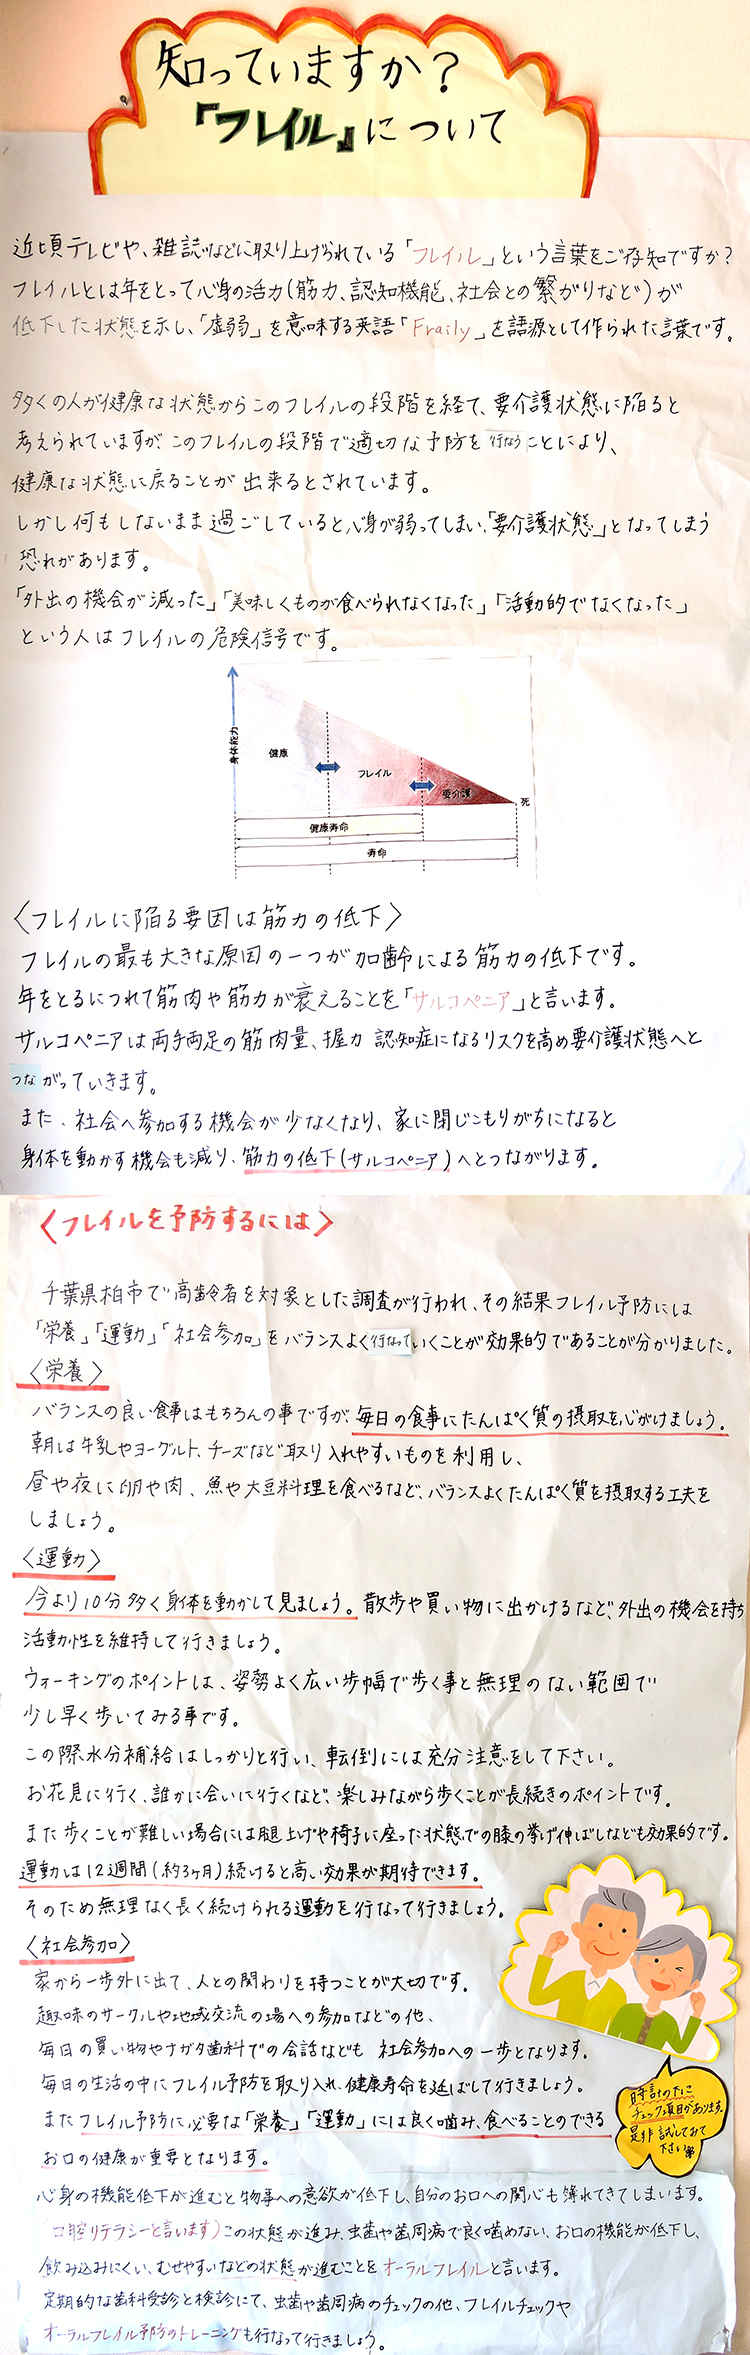 知っていますか？
『フレイル』について
近頃テレビや、雑誌などに取り上げられている「フレイル」という言葉をご存知ですか？
フレイルとは年をとって心身の活力(筋力、認知機能、社会との繋がりなど)が
低下した状態を示し、「虚弱」を意味する英語「Fraily」を語源として作られた言葉です。
多くの人が健康な状態からこのフレイルの段階を経て、要介護状態に陥ると
考えられていますが、このフレイルの段階で適切な予防を行なうことにより、
健康な状態に戻ることが出来るとされています。
しかし何もしないまま過ごしていると心身が弱ってしまい、「要介護状態」となってしまう
恐れがあります。
「外出の機会が減った」「美味しくものが食べられなくなった」「活動的でなくなった」
という人はフレイルの危険信号です。
身体能力
健康
フレイル
要介護
死
健康寿命
寿命
〈フレイルに陥る要因は筋力の低下〉
フレイルの最も大きな原因の一つが加齢による筋力の低下です。
年をとるにつれて筋肉や筋力が衰えることを「サルコペニア」と言います。
サルコペニアは両手両足の筋肉量、握力 認知症になるリスクを高め要介護状態へと
つながっていきます。
また、社会へ参加する機会が少なくなり、家に閉じこもりがちになると
身体を動かす機会も減り、筋力の低下(サルコペニア)へとつながります。
〈フレイルを予防するには〉
千葉県柏市で高齢者を対象とした調査が行われ、その結果フレイル予防には
「栄養」「運動」「社会参加」をバランスよく行なっていくことが効果的であることが分かりました。
〈栄養〉
バランスの良い食事はもちろんの事ですが、毎日の食事にたんぱく質の摂取を心がけましょう。
朝は牛乳やヨーグルト、チーズなど取り入れやすいものを利用し、
昼や夜に卵や肉、魚や大豆料理を食べるなど、バランスよくたんぱく質を摂取する工夫を
しましょう。
〈運動〉
今より10分多く身体を動かして見ましょう。散歩や買い物に出かけるなど、外出の機会を持ち
活動性を維持して行きましょう。
ウォーキングのポイントは、姿勢よく広い歩幅で歩く事と無理のない範囲で
少し早く歩いてみる事です。
この際、水分補給はしっかりと行い、転倒には充分注意をして下さい。
お花見に行く、誰かに会いに行くなど、楽しみながら歩くことが長続きのポイントです。
また歩くことが難しい場合には腿上げや椅子に座った状態での膝の挙げ伸ばしなども効果的です。
運動は12週間(約3ヶ月)続けると高い効果が期待できます。
そのため無理なく長く続けられる運動を行なって行きましょう。
〈社会参加〉
家から一歩外に出て、人との関わりを持つことが大切です。
趣味のサークルや地域交流の場への参加などの他、
毎日の買い物やナガタ歯科での会話なども 社会参加への一歩となります。
毎日の生活の中にフレイル予防を取り入れ、健康寿命を延ばして行きましょう。
またフレイル予防に必要な「栄養」「運動」には良く噛み、食べることのできる
お口の健康が重要となります。
時計の下に
チェック項目があります。
是非試してみて
下さい
心身の機能低下が進むと物事への意欲が低下し、自分のお口への関心も薄れてきてしまいます。
(口腔リテラシーと言います)この状態が進み、虫歯や歯周病で良く噛めない、お口の機能が低下し、
飲み込みにくい、むせやすいなどの状態が進むことをオーラルフレイルと言います。
定期的な歯科受診と検診にて、虫歯や歯周病のチェックの他、フレイルチェックや
オーラルフレイル予防のトレーニングも行なって行きましょう。